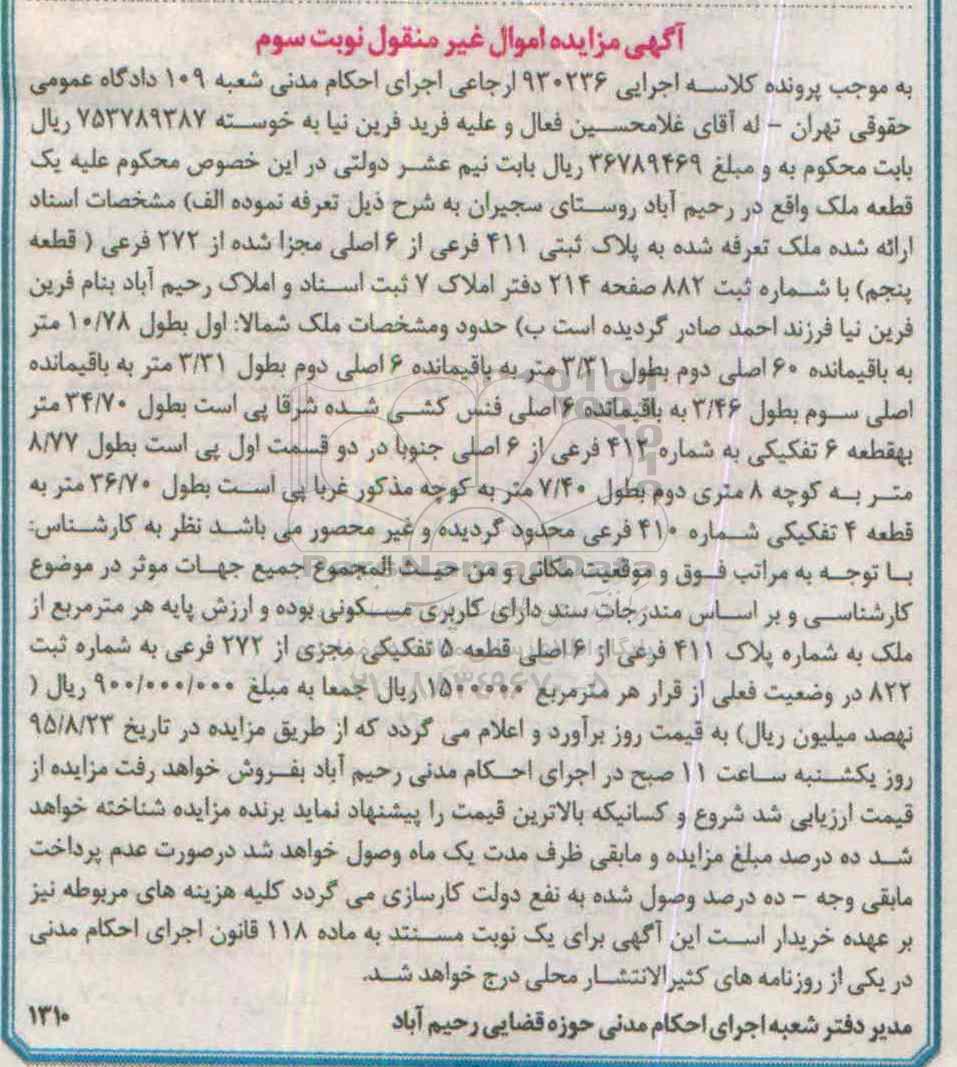 آگهی مزایده اموال غیر منقول نوبت سوم
به موجب پرونده کلاسه اجرایی ۹۳۰۲۳۶ ارجاعی اجرای احکام مدنی شعبه ۱۰۹ دادگاه عمومی
حقوقی تهران - له آقای غلامحسین فعال و علیه فرید فرین نیا به خوسته ۷۵۳۷۸۹۳۸۷ ریال
بابت محکوم به و مبلغ ۳۶۷۸۹۴۶۹ ریال بابت نیم عشر دولتی در این خصوص محکوم علیه یک
قطعه ملک واقع در رحیم آباد روستای سجیران به شرح ذیل تعرفه نموده الف) مشخصات اسناد
ارائه شده ملک تعرفه شده به پلاک ثبتی ۴۱۱ فرعی از ۶ اصلی مجزا شده از ۲۷۲ فرعی ( قطعه
پنجم) با شماره ثبت ۸۸۲ صفحه ۲۱۴ دفتر املاک ۷ ثبت اسناد و املاک رحیم آباد بنام فرین
فرین نیا فرزند احمد صادر گردیده است ب) حدود ومشخصات ملک شمالا: اول بطول ۱۰/۷۸ متر
به باقیمانده ۶۰ اصلی دوم بطول ۳/۳۱ متر به باقیمانده ۶ اصلی دوم بطول ۳/۳۱ متر به باقیمانده
اصلی سوم بطول ۳/۴۶ به باقیمانده ۶ اصلی فنس کشی شده شرقا پی است بطول ۳۴/۷۰ متر
بهقطعه ۶ تفکیکی به شماره ۴۱۲ فرعی از ۶ اصلی جنوبا در دو قسمت اول پی است بطول ۸/۷۷
متر به کوچه ۸ متری دوم بطول ۷/۴۰ متر به کوچه مذکور غربا پی است بطول ۳۶/۷۰ متر به
قطعه ۴ تفکیکی شماره ۴۱۰ فرعی محدود گردیده و غیر محصور می باشد نظر به کارشناس:
با توجه به مراتب فوق و موقعیت مکانی و من حیث المجموع جمیع جهات موثر در موضوع
کارشناسی و بر اساس مندرجات سند دارای کاربری مسکونی بوده و ارزش پایه هر مترمربع از
ملک به شماره پلاک ۴۱۱ فرعی از ۶ اصلی قطعه ۵ تفکیکی مجزی از ۲۷۲ فرعی به شماره ثبت
۸۲۲ در وضعیت فعلی از قرار هر مترمربع ۱۵۰۰۰۰۰ ریال جمعا به مبلغ ۹۰۰/۰۰۰/۰۰۰ ریال (
نهصد میلیون ریال) به قیمت روز برآورد و اعلام می گردد که از طریق مزایده در تاریخ ۹۵/۸/۲۳
روز یکشنبه ساعت ۱۱ صبح در اجرای احکام مدنی رحیم آباد بفروش خواهد رفت مزایده از
قیمت ارزیابی شد شروع و کسانیکه بالاترین قیمت را پیشنهاد نماید برنده مزایده شناخته خواهد
شد ده درصد مبلغ مزایده و مابقی ظرف مدت یک ماه وصول خواهد شد درصورت عدم پرداخت
مابقی وجه - ده درصد وصول شده به نفع دولت کارسازی می گردد کلیه هزینه های مربوطه نیز
بر عهده خریدار است این آگهی برای یک نوبت مستند به ماده ۱۱۸ قانون اجرای احکام مدنی
در یکی از روزنامه های کثیرالانتشار محلی درج خواهد شد.
مدیر دفتر شعبه اجرای احکام مدنی حوزه قضایی رحیم آباد ۱۳۱۰